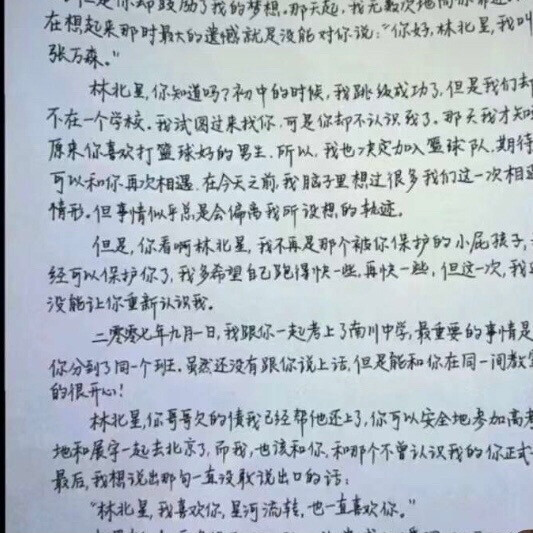 但是你却鼓励了我的梦想。那天起,我无数次地向你靠近
在想起来那时最大的遗憾就是没能对你说:“你好,林北星,我叫
张万森。”
林北星,你知道吗?初中的时候,我跳级成功了,但是我们却
不在一个学校。我试图过来找你,可是你却不认识我了。那天我才知
原来你喜欢打篮球好的男生。所以,我也决定加入篮球队,期待
可以和你再次相遇。在今天之前,我脑子里想过很多我们这一次相遇
情形。但事情似乎总是会偏离我所设想的轨迹。
但是,你看啊林北星,我不再是那个被你保护的小屁孩子,
经可以保护你了,我多希望自己跑得快一些,再快一些,但这一次,我
没能让你重新认识我。
二零零七年九月一日,我跟你一起考上了南川中学,最重要的事情是
你分到了同一个班。虽然还没有跟你说上话,但是能和你在同一间教室
的很开心!
林北星,你哥哥欠的债我已经帮他还上了,你可以安全地参加高考
地和展宇一起去北京了,而我,也该和你,和那个不曾认识我的你正式
最后,我想说出那句一直没敢说出口的话:
“林北星,我喜欢你,星河流转,也一直喜欢你。”